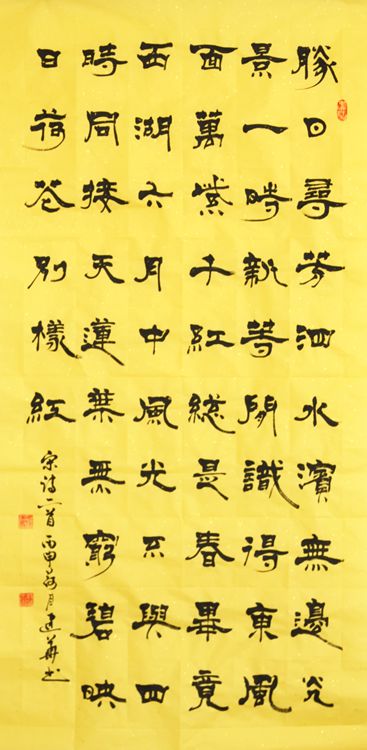 勝日尋芳泗水濱無邊光
景一時新等閑識得東風
面萬紫千紅總是春畢竟
西湖六月中風光不與四
時同接天蓮葉無窮碧映
日荷花別樣紅
宋詩二首丙申月建華书